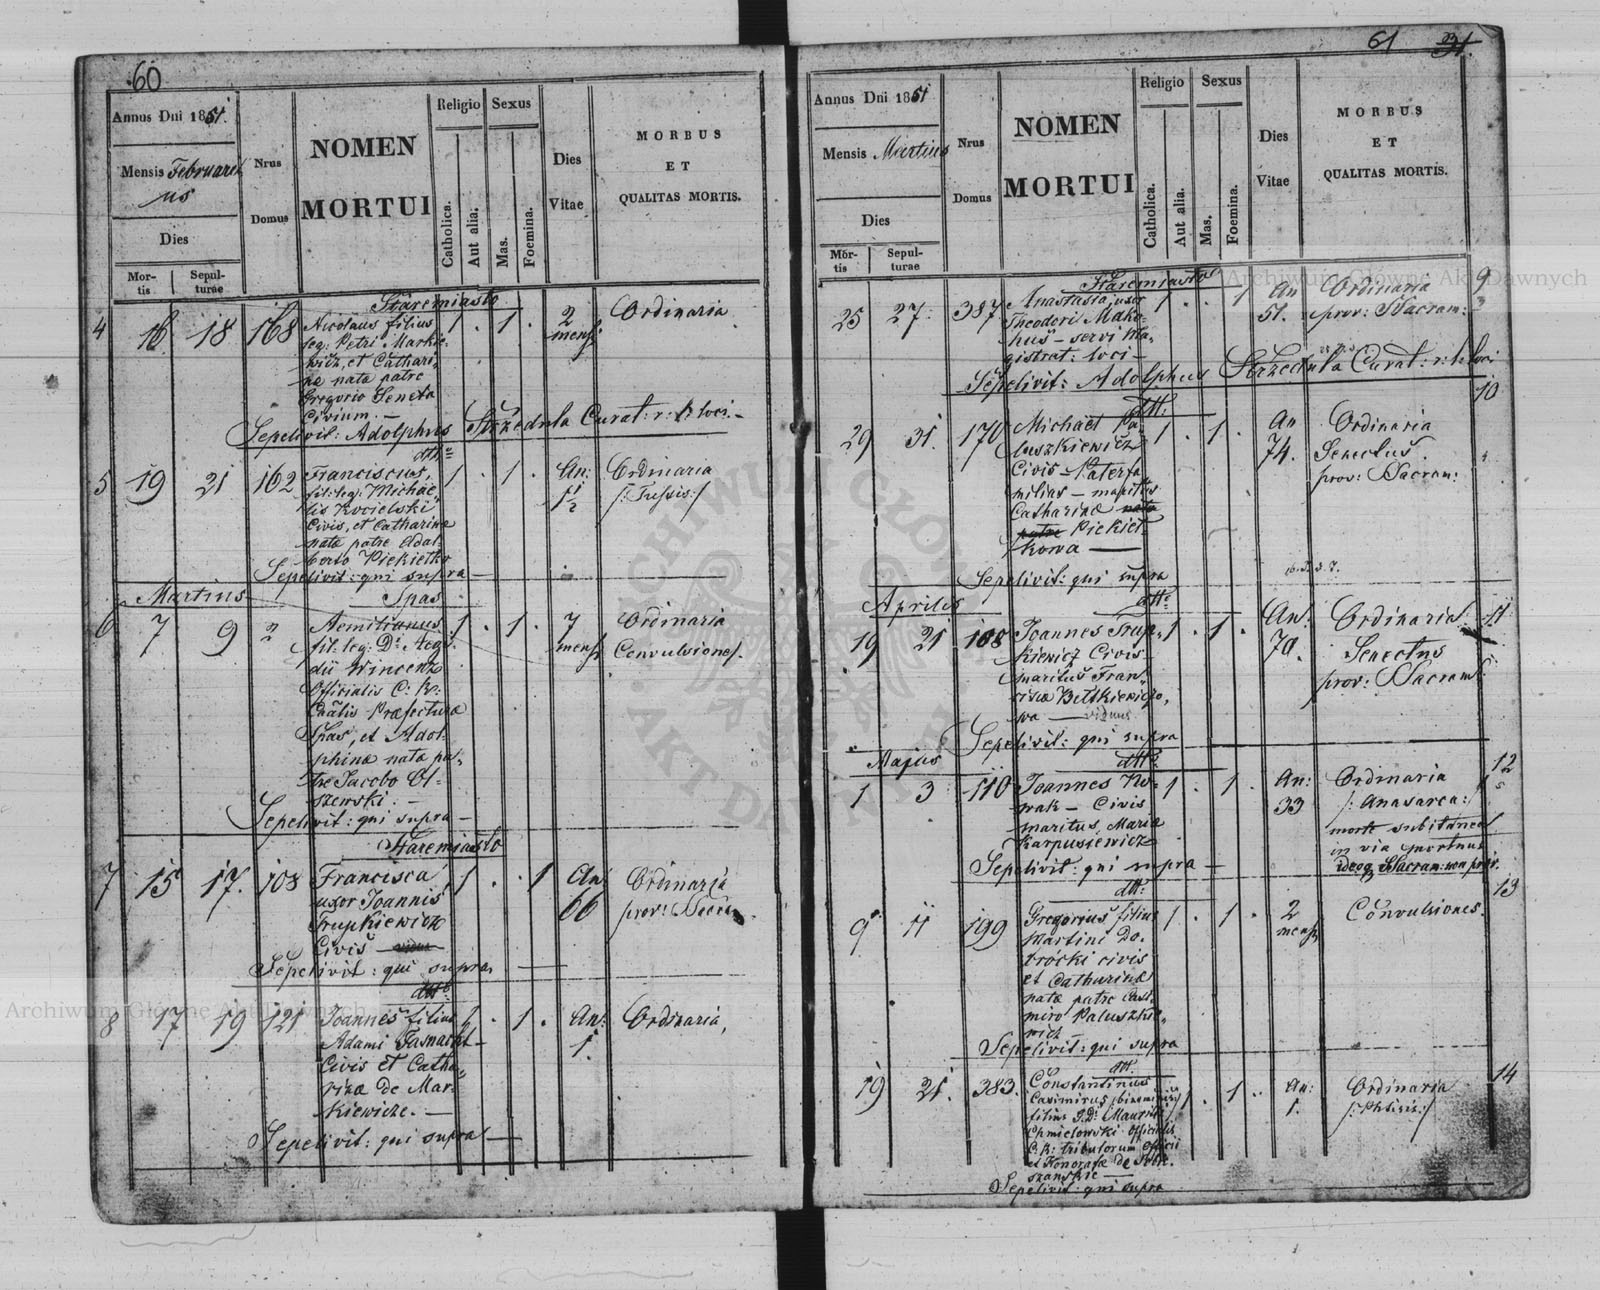 60
Annus Dni 1851.
Mensis Februari
us
Dies
Mortis
Sepulturae
Nrus
Domus
NOMEN
MORTUI
Religio
Catholica.
Aut alia.
Sexus
Mas.
Foemina.
Dies
Vitae
MORBUS
ET
QUALITAS MORTIS.
Staremiasto
4 16 18 168 Nicolaus filius 1 . 1 . 2 Ordinaria
leg: Petri Markie- mens:
wicz, et Cathari-
na nata patre
Gregorio Seneta
Civium. —
Sepelivit: Adolphus Strzedula Curat: r: l: loci. —
dtto
5 19 21 162 Franciscus, 1 . 1 . An: Ordinaria
fil: leg: Michae- 1½ /: Tussis :/
lis Kocielski
Civis, et Catharina
nata patre Adal-
berto Piekiełko
Sepelivit: qui supra —
Martius Spas
6 7 9 2 Aemilianus 1 . 1 . 7 Ordinaria
fil: leg: Di Aegi- mens: Convulsiones.
dii Wincenz
Officialis C: R:
Cralis Praefectura
Spas, et Adol-
phina nata pa-
tre Jacobo Ol-
szewski. —
Sepelivit: qui supra —
Staremiasto
7 15 17. 108 Francisca 1 . . 1 An: Ordinaria
uxor Joannis 66 prov: Sacra
Trupkiewicz
Civis
Sepelivit: qui supra
dtto
8 17 19 121 Joannes filius 1 . 1 . An: Ordinaria,
Adami Fasnacht 1.
Civis et Catha-
rina de Mar-
kiewicze. —
Sepelivit: qui supra —
61 31.
Annus Dni 1851
Mensis Martius
Dies
Mortis
Sepulturae
Nrus
Domus
NOMEN
MORTUI
Religio
Catholica.
Aut alia.
Sexus
Mas.
Foemina.
Dies
Vitae
MORBUS
ET
QUALITAS MORTIS.
Staremiasto
25 27. 387 Anastasia, uxor 1 . . 1 An Ordinaria 9
Theodori Mako- 51. prov: Sacram:
huś – servi Ma-
gistrat: loci —
Sepelivit: Adolphus Strzedula Curat: r: l: loci
dtt:
29 31. 170 Michaël Pa- 1 . 1 . An Ordinaria 10
luszkiewicz 74. Senectus.
Civis – Paterfa- prov: Sacram:
milias – maritus
Catharinae nata
patre Piekieł-
kowa —
Sepelivit: qui supra
Aprilis dtto
19 21 108 Joannes Trup- 1 . 1 . An: Ordinaria. 11
kiewicz Civis 70. Senectus
maritus Fran- prov: Sacram:
ciscae Bełtkiewiczo-
wa — viduus
Sepelivit: qui supra
Majus dtto
1 3 110 Joannes No- 1 . 1 . An: Ordinaria 12
wak – Civis 33 /: Anasarca :/
maritus, Maria mors subitanea
Karpusiewicz in via mortuus
Sepelivit: qui supra — ideoq Sacram: non prov.
dtt:
9 11 199 Gregorius filius 1 . 1 . 2 Convulsiones. 13
Martini Do- mens:
brocki civis
et Catharinae
nata patre Casi-
miro Paluszkie-
wicz
Sepelivit: qui supra
dtt.
19 21. 383. Constantinus 1 . 1 . An: Ordinaria 14
Casimirus, binominis 1. /: Phtisis :/
filius D.Di Mauritii
Chmielowski Officialis
C.R: tributorum Officii
et Honorata de
Sepelivit: qui supra
Archiwum Główne Akt Dawnych
Archiwum Główne Akt Dawnych